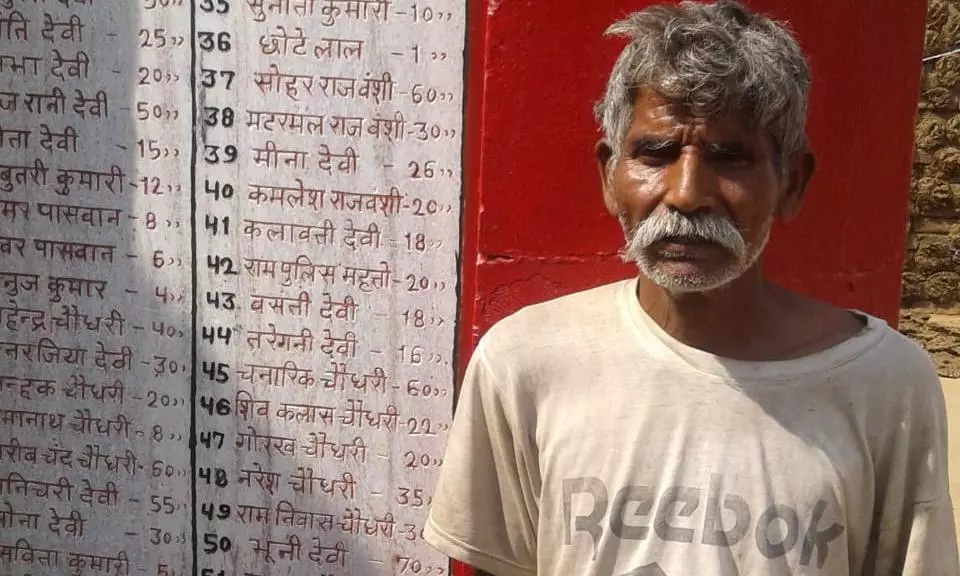 ति देवी - 25,,
भा देवी - 20,,
ज रानी देवी - 50,,
ता देवी - 15,,
बुतरी कुमारी - 12,,
मर पासवान - 8,,
वर पासवान - 6,,
नुज कुमार - 4,,
हेन्द्र चौधरी - 40,,
नरजिया देवी - 30,,
न्हक चौधरी - 20,,
मानाथ चौधरी - 8,,
रीब चंद चौधरी - 60,,
निचरी देवी - 55,,
ोना देवी - 30,,
सविता कुमारी - 5,,
35 सुनीता कुमारी - 10,,
36 छोटे लाल - 1,,
37 सोहर राजवंशी - 60,,
38 मटरमल राजवंशी - 30,,
39 मीना देवी - 26,,
40 कमलेश राजवंशी - 20,,
41 कलावती देवी - 18,,
42 राम पुलिस महतो - 20,,
43 वसंती देवी - 18,,
44 तरेगनी देवी - 16,,
45 चनारिक चौधरी - 60,,
46 शिव कलास चौधरी - 22,,
47 गोरख चौधरी - 20,,
48 नरेश चौधरी - 35,
49 राम निवास चौधरी - 3
50 भूनी देवी - 70,,
Reebok